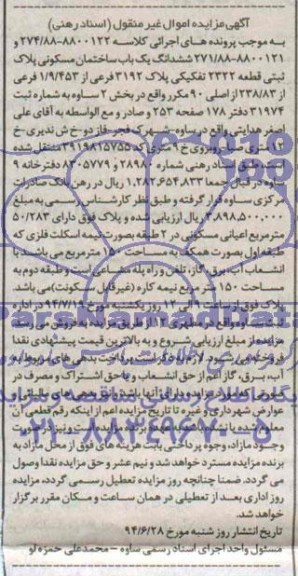 آگهی مزایده اموال غیر منقول (اسناد رهنی)
به موجب پرونده های اجرائی کلاسه ۸۸۰۰۱۲۲-۲۷۴/۸۸ و
۸۸۰۰۱۲۱-۲۷۱/۸۸ ششدانگ یک باب ساختمان مسکونی پلاک
ثبتی قطعه ۲۳۲۲ تفکیکی پلاک ۳۱۹۲ فرعی از ۱/۹/۴۵۳ فرعی
از ۲۳۸/۸۳ از اصلی ۹۰ مکرر واقع در بخش ۲ ساوه به شماره ثبت
۳۱۹۷۴ دفتر ۱۷۸ صفحه ۲۵۳ و صادر و مع الواسطه به آقای علی
اصغر هدایتی واقع در ساوه-شهرک فجر-فاز دو-خ ش ندیری-خ
۱۲متری- کد ۳۹۱۹۸۱۵۷۵۵ منتقل شده
است طبق اسناد رهنی شماره ۲۸۹۸۰ و ۸۳۰۵۷۷۹ دفترخانه ۹
ساوه در قبال جمعا ۱,۲۸۲,۶۵۴,۸۳۳ ریال در رهن بانک صادرات
مرکزی ساوه قرار گرفته و طبق نظر کارشناس رسمی به مبلغ
۳,۸۹۸,۵۰۰,۰۰۰ ریال ارزیابی شده و پلاک فوق دارای ۵۰/۲۸۳
مترمربع اعیانی مسکونی در ۲ طبقه بصورت نیمه اسکلت فلزی که
طبقه اول بصورت همکف به مساحت ۱۵۰ متر مربع می باشد با
انشعاب آب، برق، گاز، تلفن و راه پله مشاعی است و طبقه دوم به
مساحت ۱۵۰ متر مربع نیمه کاره (غیرقابل سکونت) می باشد.
پلاک فوق از ساعت ۹ الی ۱۲ روز یکشنبه مورخ ۹۴/۷/۱۹ در اداره
ثبت ساوه واقع در مطهری ۱۲ از طریق مزایده به فروش می رسد.
مزایده از مبلغ ارزیابی شروع و به بالاترین قیمت پیشنهادی نقدا
فروخته می شود. لازم به ذکر است پرداخت بدهی های مربوط به
آب، برق، گاز اعم از حق انشعاب و یا حق اشتراک و مصرف در
صورتی که مورد مزایده دارای آنها باشد و نیز بدهی های مالیاتی و
عوارض شهرداری و غیره تا تاریخ مزایده اعم از اینکه رقم قطعی آن
معلوم شده یا نشده باشد به عهده برنده مزایده است و نیز در صورت
وجود مازاد، وجوه پرداختی بابت هزینه های فوق از محل مازاد به
برنده مزایده مسترد خواهد شد و نیم عشر و حق مزایده نقدا وصول
می گردد. ضمنا چنانچه روز مزایده تعطیل رسمی گردد، مزایده
روز اداری بعد از تعطیلی در همان ساعت و مکان مقرر برگزار
خواهد شد.
تاریخ انتشار روز شنبه مورخ ۹۴/۶/۲۸
مسئول واحد اجرای اسناد رسمی ساوه – محمدعلی حمزه لو
ParsNamadData
۰۲۱-۸۸۳۴۹۶۷۰-۵